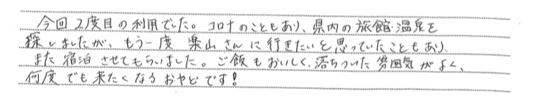 今回2度目の利用でした。コロナのこともあり、県内の旅館温泉を
探しましたが、もう一度 楽山さんに行きたいと思っていたこともあり、
また宿泊させてもらいました。ご飯もおいしく、落ちついた雰囲気がよく、
何度でも来たくなるおやどです!